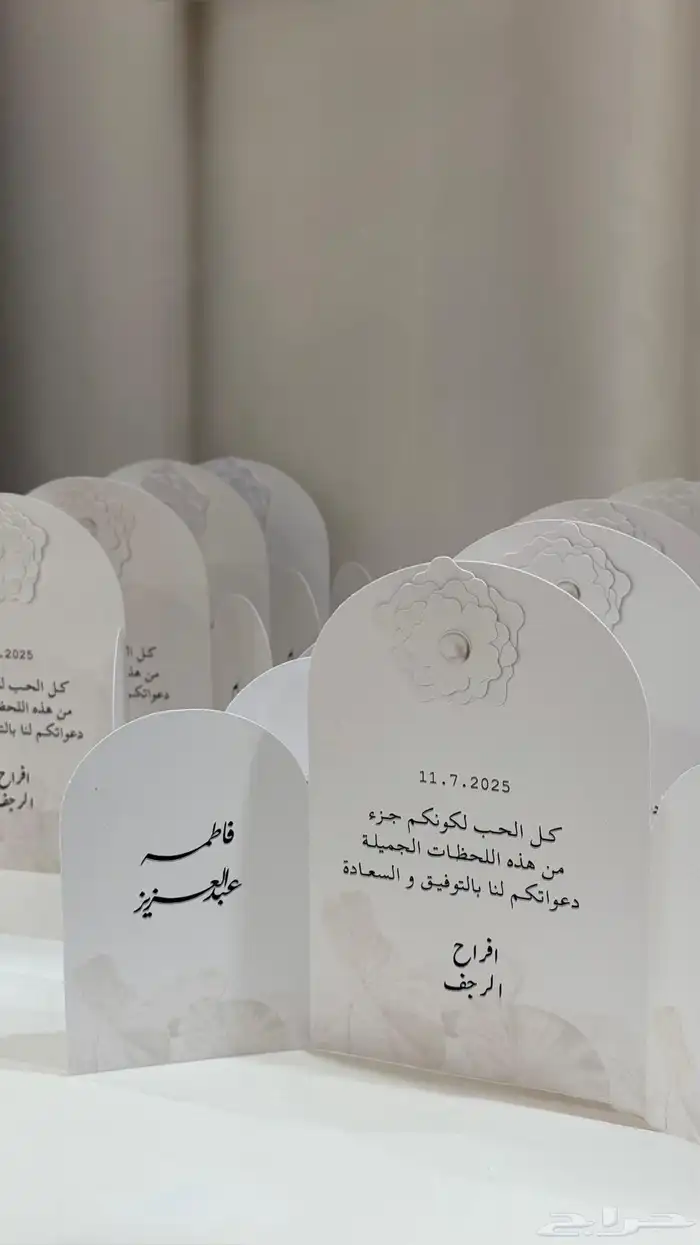 11.7.2025
كل الحب لكونكم جزء
من هذه اللحظات الجميلة
دعواتكم لنا بالتوفيق و السعادة
افراح
الرجف
فاطمه
عبدالعزيز
.2025
كل الحب
من هذه
دعواتكم لنا
افراح
كل
من
دعواتكم
حراج